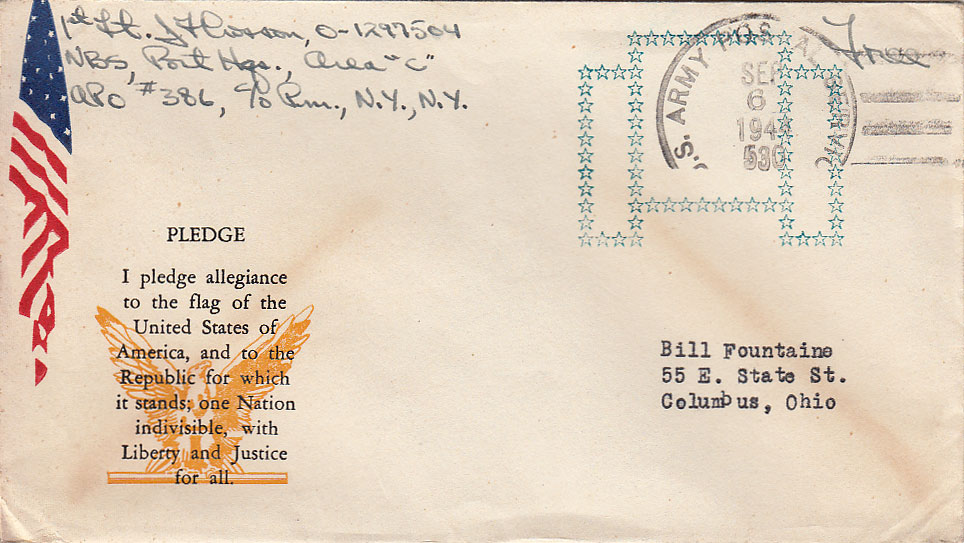 1st Lt. J. Thisson, O-1297504
NBS, Port Hqs., Area "C"
APO #386, c/o P.m., N.Y., N.Y.
Free
U.S. ARMY POSTAL SERVICE
SEP
6
1944
530
PLEDGE
I pledge allegiance
to the flag of the
United States of
America, and to the
Republic for which
it stands; one Nation
indivisible, with
Liberty and Justice
for all.
Bill Fountaine
55 E. State St.
Columbus, Ohio